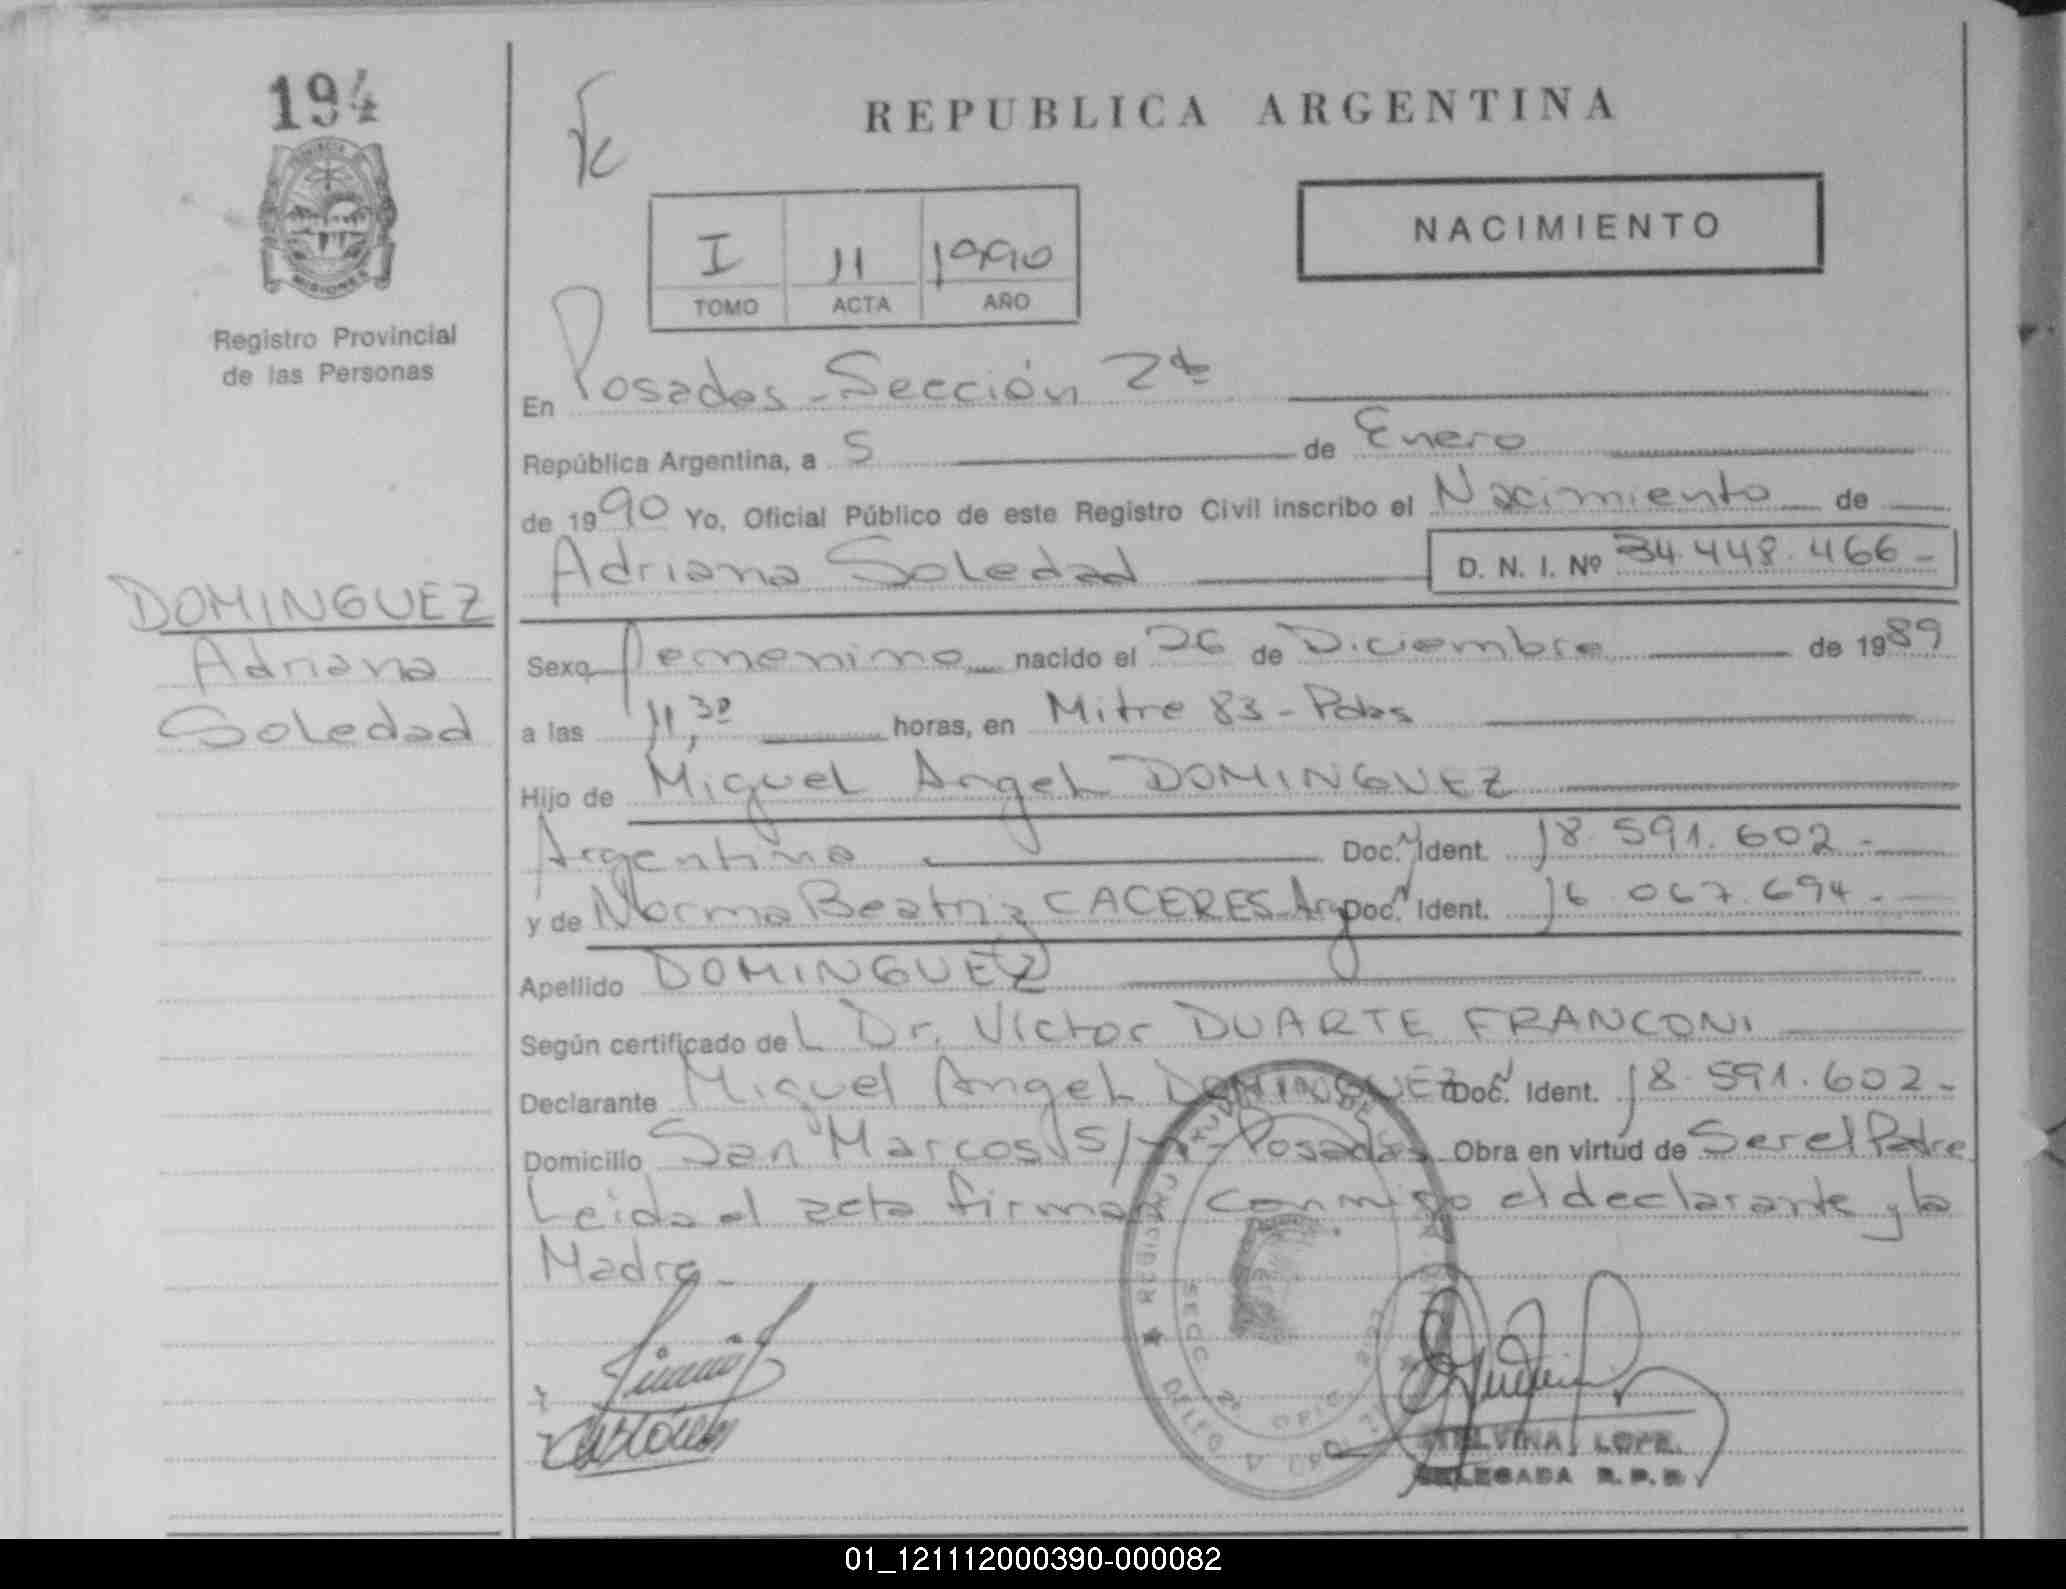 194
PROVINCIA
MISIONES
Registro Provincial
de las Personas
DOMINGUEZ
Adriana
Soledad
REPUBLICA ARGENTINA
NACIMIENTO
I 11 1990
TOMO ACTA AÑO
En Posadas - Sección 2da
República Argentina, a 5 de Enero
de 1990 Yo, Oficial Público de este Registro Civil inscribo el Nacimiento de
Adriana Soledad D. N. I. Nº 34.448.466-
Sexo femenino nacido el 26 de Diciembre de 1989
a las 11,30 horas, en Mitre 83 - Pdas
Hijo de Miguel Angel DOMINGUEZ
Argentino Doc. Ident. 18.591.602-
y de Norma Beatriz CACERES Arg Doc. Ident. 16.067.694-
Apellido DOMINGUEZ
Según certificado del Dr. Victor DUARTE FRANCONI
Declarante Miguel Angel DOMINGUEZ Doc. Ident. 18.591.602-
Domicilio San Marcos s/n - Posadas Obra en virtud de Ser el Padre
Leida el acta firman conmigo el declarante y la
Madre-
SECC 2
DELEGADA R.P.P.
01_121112000390-000082